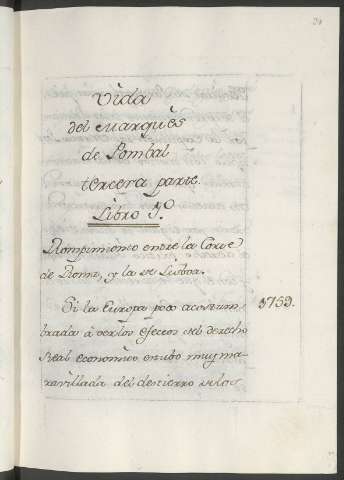 Vida
del Marquès
de Pombal
tercera parte.
Libro 5º
Rompimiento entre la Corte
de Roma, y la de Lisboa.
Si la Europa poco acostum-
1759.
brada à ver los efectos del derecho
Real economico estubo muy ma-
ravillada del destierro de los